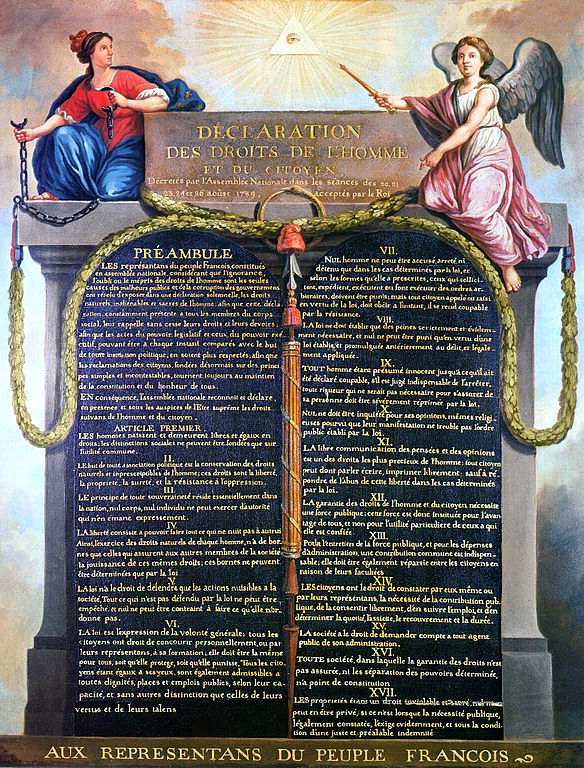 DÉCLARATION
DES DROITS DE L'HOMME
ET DU CITOYEN,
Décretés par l'Assemblée Nationale dans les séances des 20, 21
23, 24 et 26 aoûst 1789, acceptés par le Roi
PRÉAMBULE
LES représentans du peuple Francois, constitués
en assemblée nationale, considérant que l'ignorance,
l'oubli ou le mépris des droits de l'homme sont les seules
causes des malheurs publics et de la corruption des gouvernemens
ont résolu d'exposer dans une déclaration solemnelle, les droits
naturels, inaliénables et sacrés de l'homme; afin que cette décla-
ration, constamment présente a tous les membres du corps
social, leur rappelle sans cesse leurs droits et leurs devoirs;
afin que les actes du pouvoir législatif et ceux du pouvoir exé-
cutif, pouvant être a chaque instant comparés avec le but
de toute institution politique, en soient plus respectés; afin que
les reclamations des citoyens, fondées désormais sur des princi-
pes simples et incontestables, tournent toujours au maintien
de la constitution et du bonheur de tous.
EN conséquence, l'assemblée nationale reconnoit et déclare,
en presence et sous les auspices de l'Etre suprême les droits
suivans de l'homme et du citoyen.
ARTICLE PREMIER.
LES hommes naissent et demeurent libres et égaux en
droits; les distinctions sociales ne peuvent être fondées que sur
l'utilité commune.
II.
LE but de toute association politique est la conservation des droits
naturels et inprescriptibles de l'homme; ces droits sont la liberté,
la propriété, la sureté, et la résistance à l'oppression.
III.
LE principe de toute souveraineté réside essentiellement dans
la nation, nul corps, nul individu ne peut exercer d'autorité
qui n'en émane expressement.
IV.
LA liberté consiste a pouvoir faire tout ce qui ne nuit pas à autrui
Ainsi, l'exercice des droits naturels de chaque homme, n'a de bor-
nes que celles qui assurent aux autres membres de la société
la jouissance de ces mêmes droits; ces bornes ne peuvent
être déterminées que par la loi
V.
LA loi n'a le droit de défendre que les actions nuisibles a la
société. Tout ce qui n'est pas défendu par la loi ne peut être
empêché, et nul ne peut être contraint à faire ce qu'elle n'or-
donne pas.
VI.
LA loi est l'expression de la volonté générale; tous les
citoyens ont droit de concourir personnellement, ou par
leurs représentans, à sa formation; elle doit être la même
pour tous, soit qu'elle protege, soit qu'elle punisse, Tous les cito-
yens étant égaux à ses yeux, sont également admissibles a
toutes dignités, places et emplois publics, selon leur ca-
pacité, et sans autres distinction que celles de leurs
vertus et de leurs talens
VII.
NUL homme ne peut être accusé, arreté, ni
détenu que dans les cas déterminés par la loi, et
selon les formes qu'elle a prescrites, ceux qui sollici-
tent, expédient, exécutent ou font exécuter des ordres ar-
bitraires, doivent être punis; mais tout citoyen appelé ou saisi
en vertu de la loi, doit obéir a l'instant, il se rend coupable
par la résistance.
VIII.
LA loi ne doit établir que des peines strictement et évidem-
ment nécessaire, et nul ne peut être puni qu'en vertu d'une
loi établie et promulguée antérierement au délit, et légale-
ment appliquée.
IX.
TOUT homme étant présumé innocent jusqu'à ce qu'il ait
été déclaré coupable, s'il est jugé indispensable de l'arrêter,
toute rigueur qui ne serait pas nécessaire pour s'assurer de
sa personne doit être sévèrement réprimée par la loi.
X.
NUL ne doit être inquiété pour ses opinions, mêmes religi-
euses pourvu que leur manifestation ne trouble pas l'ordre
public établi par la loi.
XI.
LA libre communication des pensées et des opinions
est un des droits les plus precieux de l'homme; tout citoyen
peut dont parler écrire, imprimer librement: sauf à ré-
pondre de l'abus de cette liberté dans les cas déterminés
par la loi.
XII.
LA garantie des droits de l'homme et du citoyen nécessite
une force publique; cette force est donc instituée pour l'avan-
tage de tous, et non pour l'utilité particuliere de ceux a qui
elle est confiée.
XIII.
POUR l'entretien de la force publique, et pour les dépenses
d'administration, une contribution commune est indispen-
sable; elle doit être également répartie entre les citoyens en
raison de leurs facultées
XIV.
LES citoyens ont le droit de constater par eux même ou
par leurs représentans, la nécessité de la contribution pub-
lique, de la consentir librement, d'en suivre l'emploi, et d'en
déterminer la quotité, l'assiette, le recouvrement et la durée.
XV.
LA société a le droit de demander compte a tout agent
public de son administration.
XVI.
TOUTE société, dans laquelle la garantie des droits n'est
pas assurée, ni les séparation des pouvoirs déterminée,
n'a point de constitution
XVII.
LES proprietés étant un droit inviolable et sacré, nul ne
peut en être privé, si ce n'est lorsque la nécessité publique,
légalement constatée, l'exige evidemment, et sous la condi-
tion d'une juste et préalable indemnité
AUX REPRESENTANS DU PEUPLE FRANCOIS